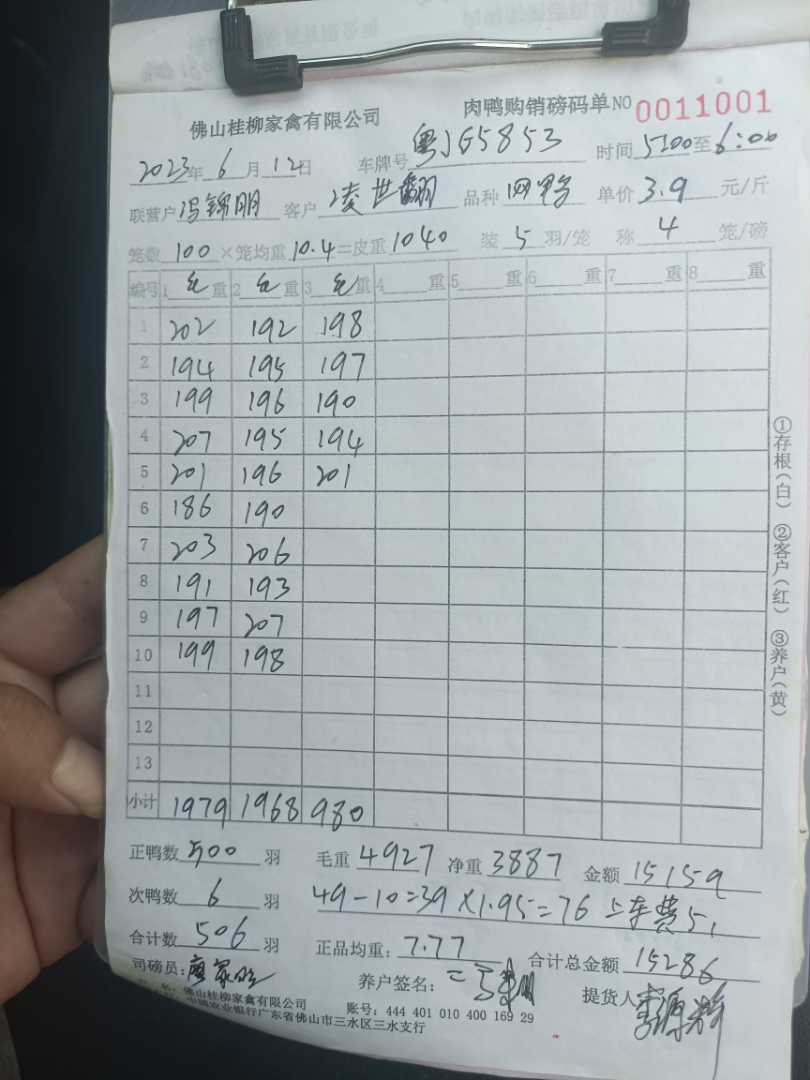 佛山桂柳家禽有限公司 肉鸭购销磅码单 NO 0011001
2023年6月12日 车牌号 粤J65853 时间 5:00至6:00
联营户 冯锦明 客户 凌世翻 品种 四鸭 单价 3.9 元/斤
笼数 100 ×笼均重 10.4 =皮重 1040 装 5 羽/笼 称 4 笼/磅
编号 1 毛 重 2 毛 重 3 毛 重 4 重 5 重 6 重 7 重 8 重
1 202 192 198
2 194 195 197
3 199 196 190
4 207 195 194
5 201 196 201
6 186 190
7 203 206
8 191 193
9 197 207
10 199 198
11
12
13
小计 1979 1968 980
正鸭数 500 羽 毛重 4927 净重 3887 金额 15159
次鸭数 6 羽 49-10=39×1.95=76 上车费51
合计数 506 羽 正品均重: 7.77 合计总金额 15286
司磅员: 养户签名: 提货人
名: 佛山桂柳家禽有限公司 账号: 444 401 010 400 169 29
中国农业银行广东省佛山市三水区三水支行
①存根(白) ②客户(红) ③养户(黄)